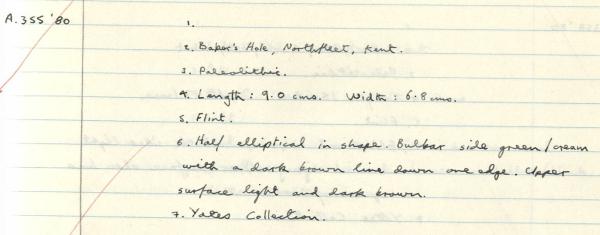 A.355 '80
1.
2. Baker's Hole, Northfleet, Kent.
3. Paleolithic.
4. Length : 9.0 cms. Width : 6.8 cms.
5. Flint.
6. Half elliptical in shape. Bulbar side green/cream
with a dark brown line down one edge. Upper
surface light and dark brown.
7. Yates Collection.